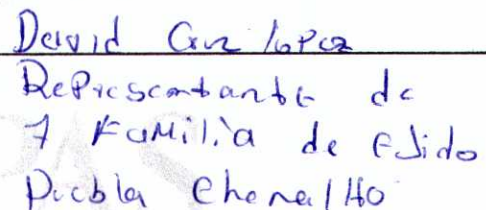 David Cruz lopez
Representante de
7 Familia de Ejido
Puebla Chenalho